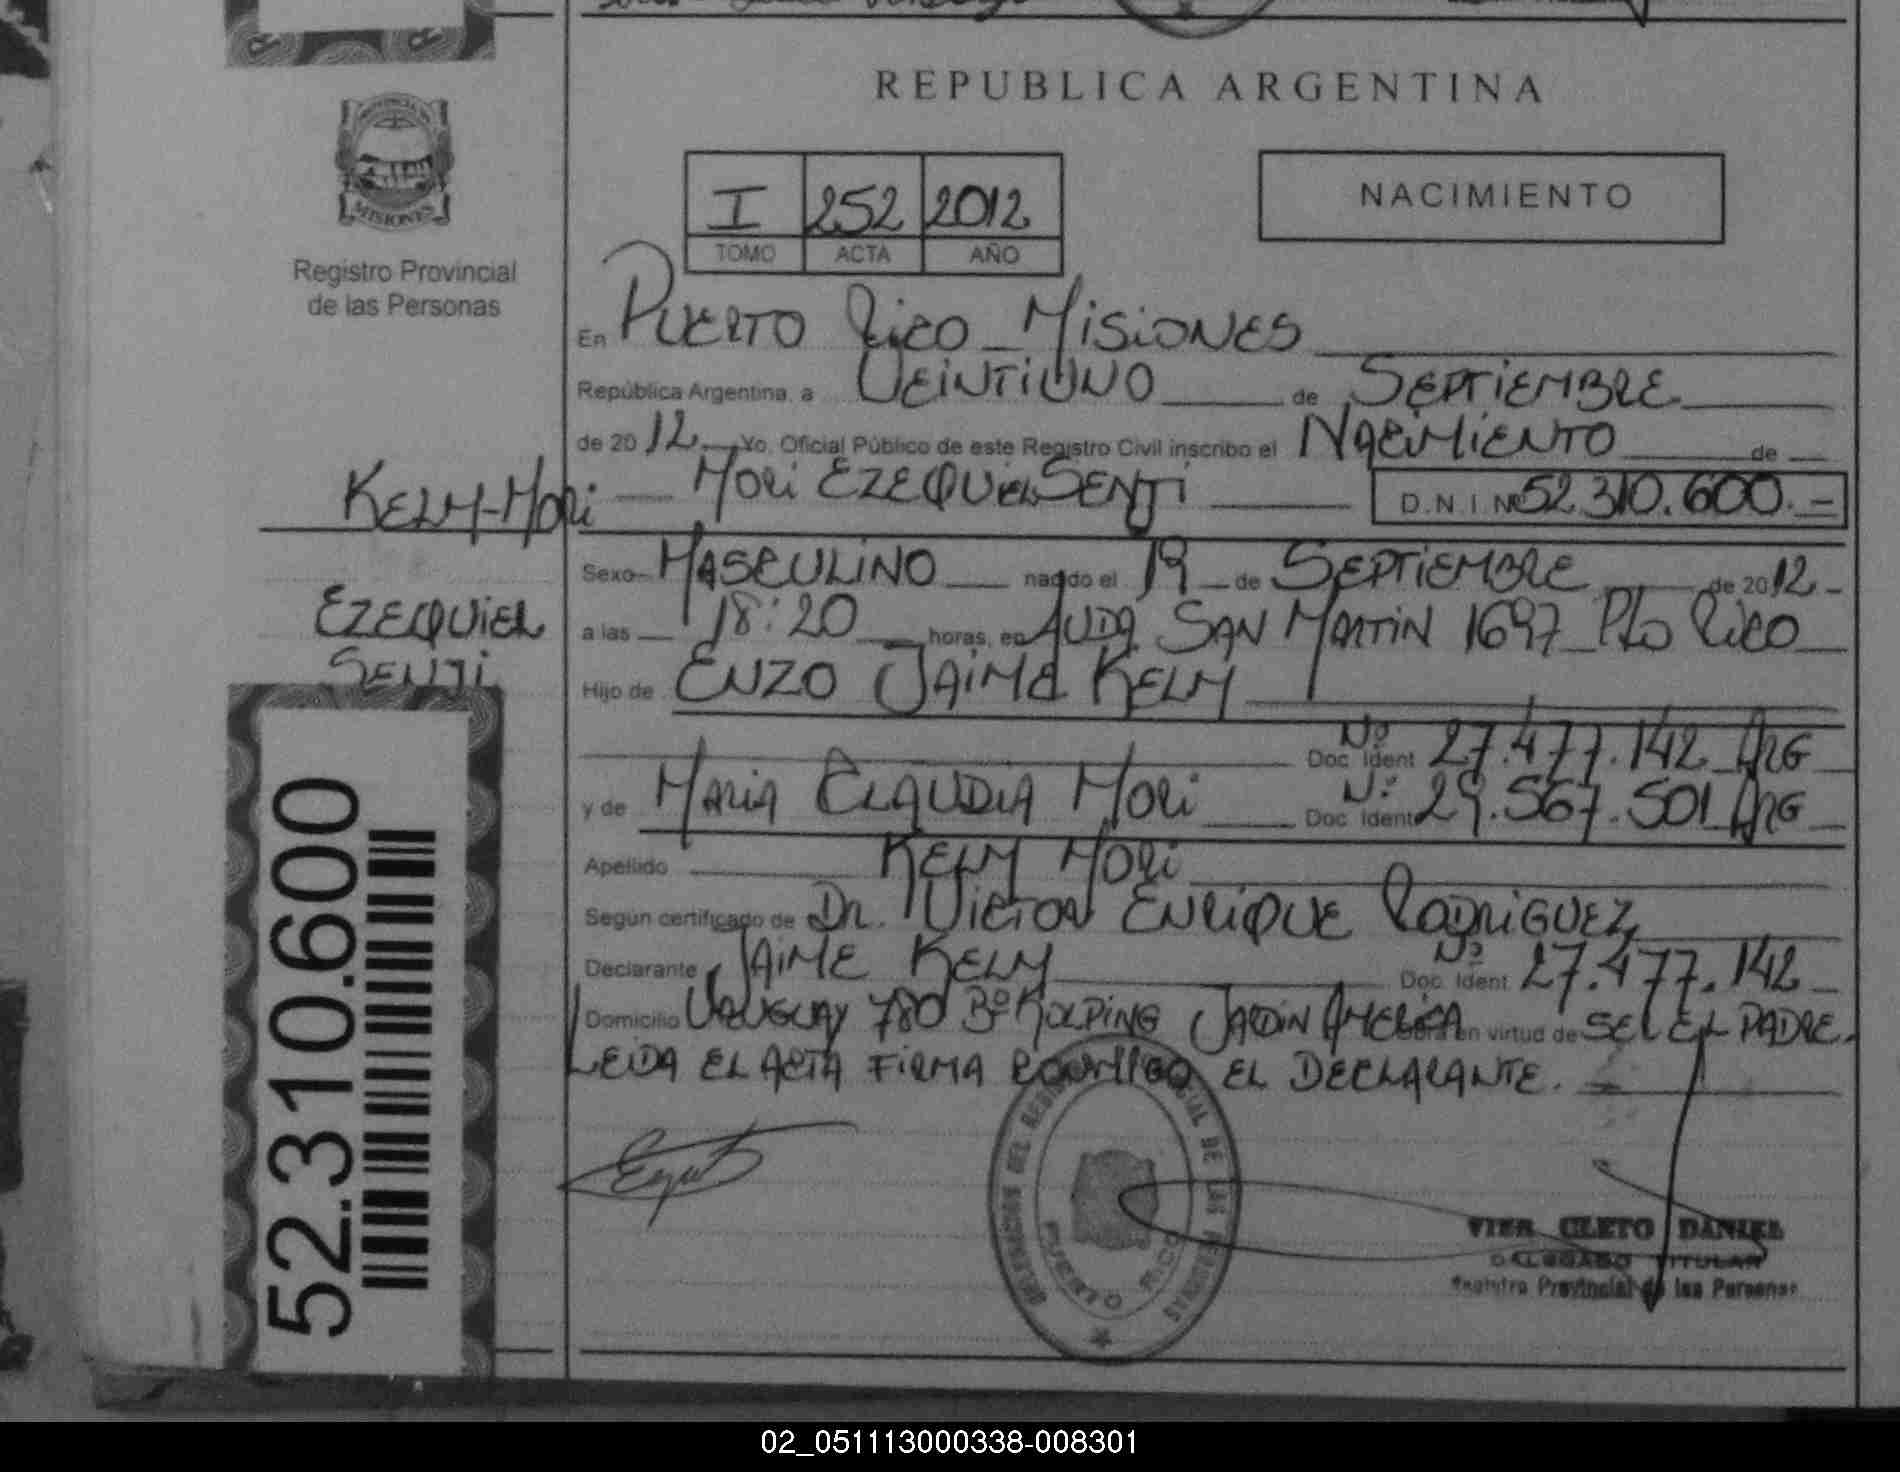 REPUBLICA ARGENTINA
MISIONES
Registro Provincial
de las Personas
I 252 2012
TOMO ACTA AÑO
NACIMIENTO
En PUERTO RICO _ MISIONES
República Argentina, a VEINTIUNO de SEPTIEMBRE
de 20 12 Yo, Oficial Público de este Registro Civil inscribo el NACIMIENTO de
MORI EZEQUIEL SENJI D.N.I. Nº 52.310.600.-
KELM-MORI
EZEQUIEL
SENJI
Sexo MASCULINO nacido el 19 de SEPTIEMBRE de 20 12 -
a las 18:20 horas, en AVDA SAN MARTIN 1697 _ Pto RICO
Hijo de ENZO JAIME KELM
Nº
Doc. Ident. 27.477.142 _ ARG
y de MARIA CLAUDIA MORI Nº Doc. Ident. 29.567.501 _ ARG
Apellido KELM MORI
Según certificado de DR. VICTOR ENRIQUE RODRIGUEZ
Declarante JAIME KELM Nº Doc. Ident. 27.477.142 _
Domicilio URUGUAY 780 Bº KOLPING JARDIN AMERICA Obra en virtud de SER EL PADRE.
LEIDA EL ACTA FIRMA CONMIGO EL DECLARANTE.
52.310.600
PUERTO RICO
VIER CLETO DANIEL
DELEGADO TITULAR
Registro Provincial de las Personas
02_051113000338-008301